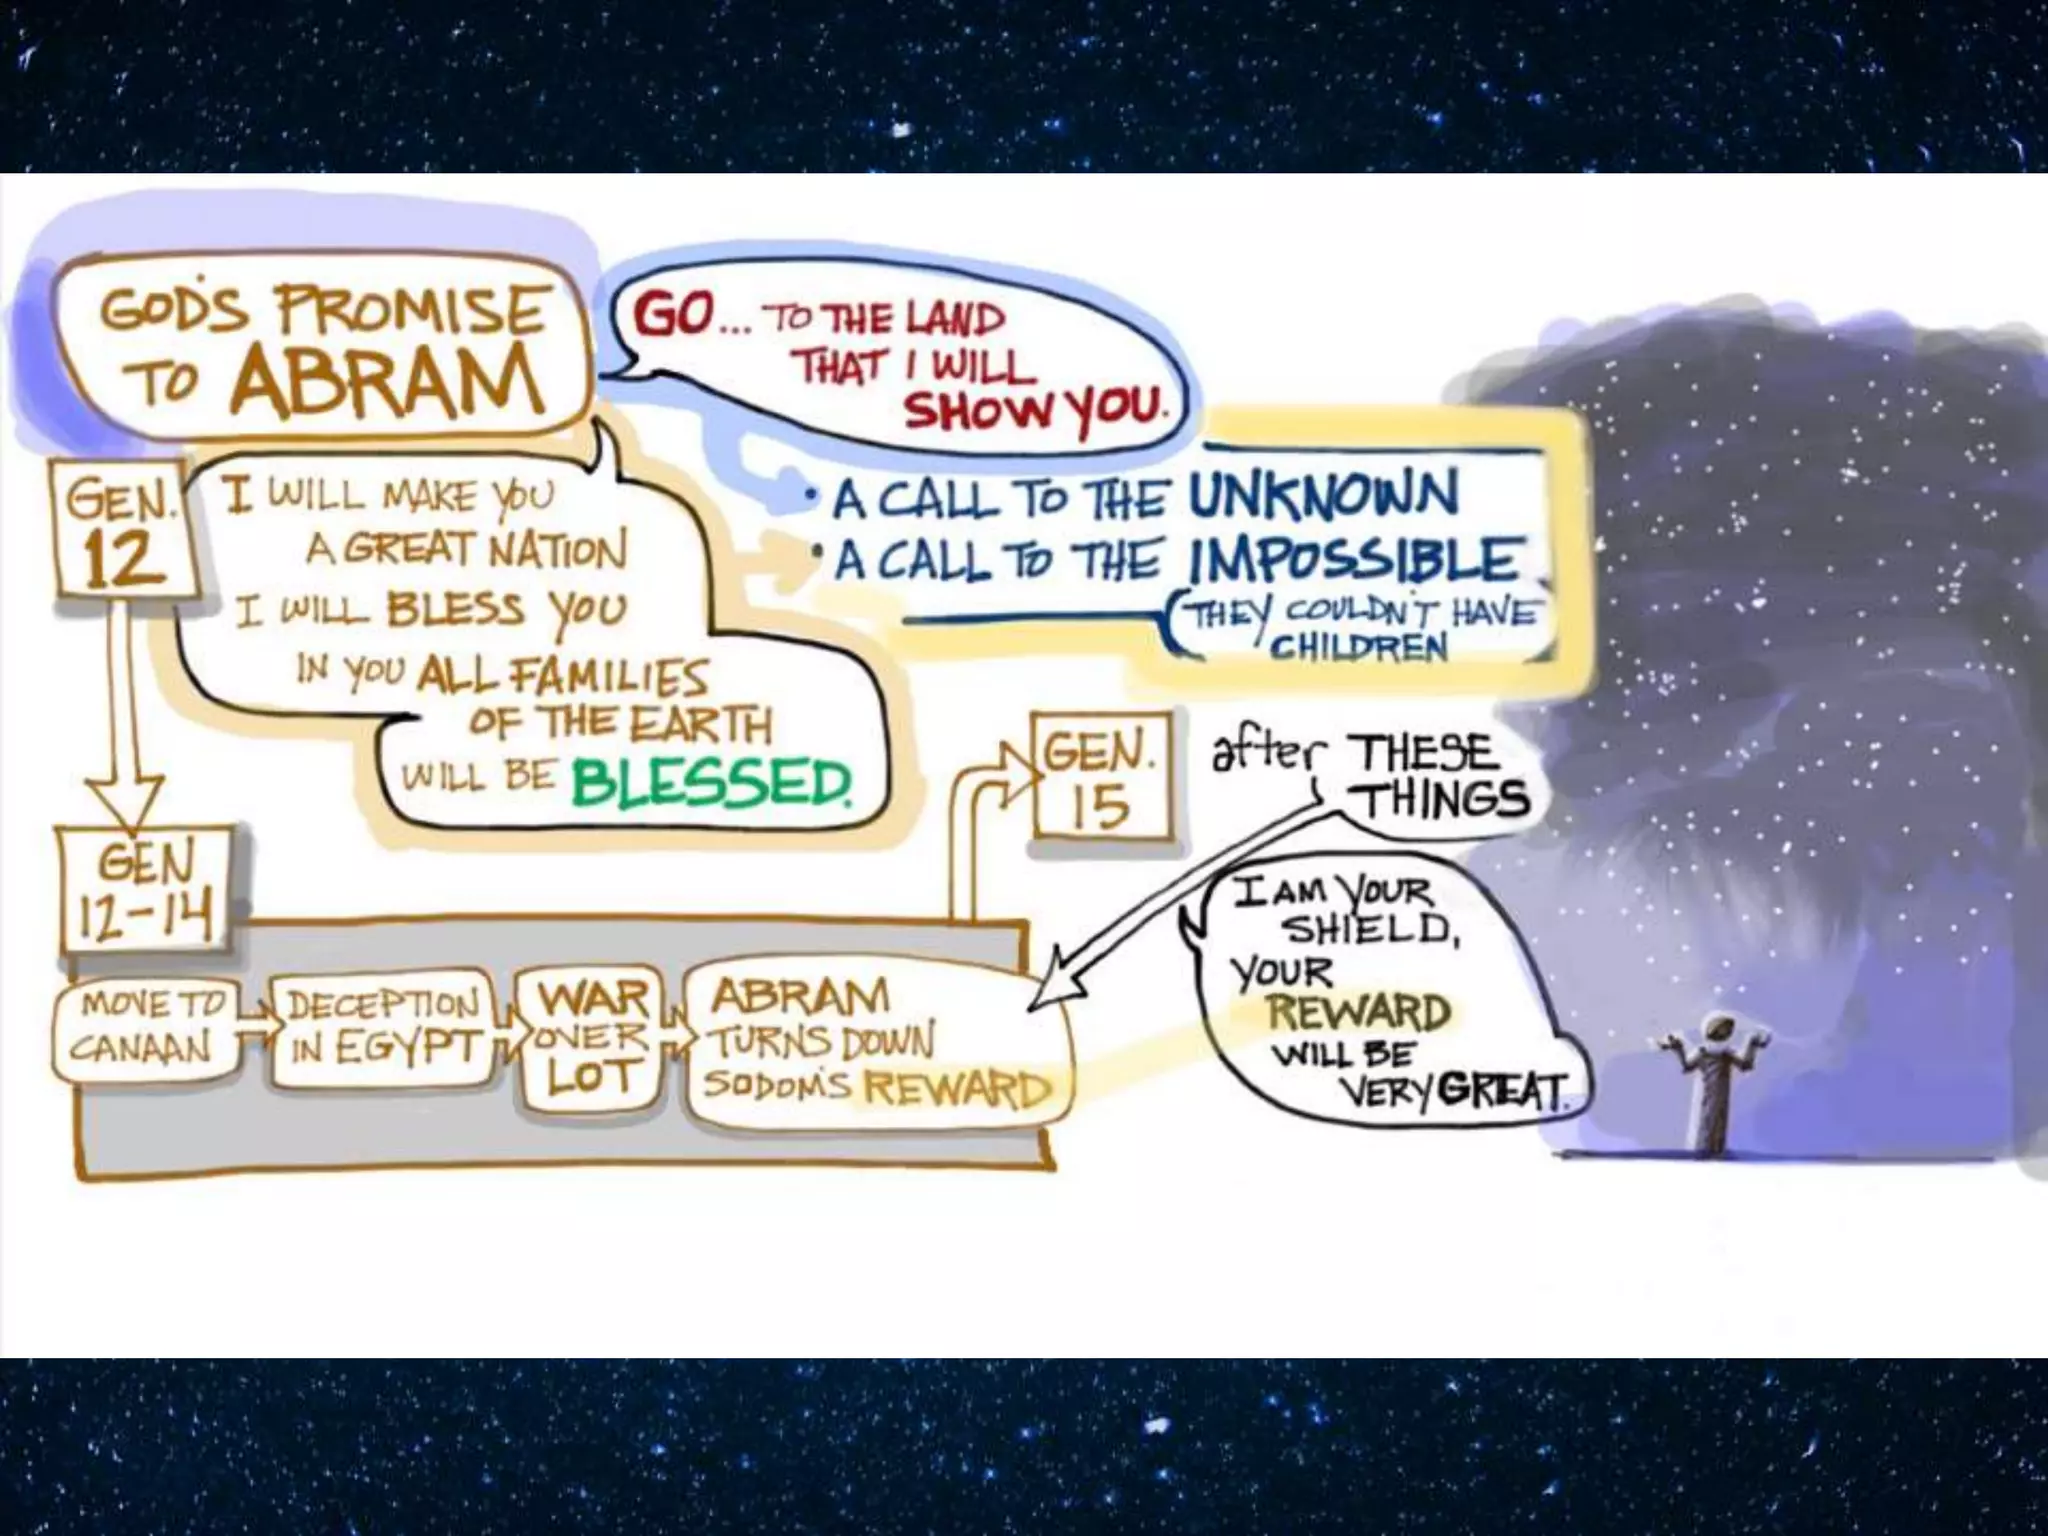 GOD'S PROMISE
TO ABRAM
GO... TO THE LAND
THAT I WILL
SHOW YOU.
GEN.
12
I WILL MAKE YOU
A GREAT NATION
I WILL BLESS YOU
IN YOU ALL FAMILIES
OF THE EARTH
WILL BE BLESSED.
• A CALL TO THE UNKNOWN
• A CALL TO THE IMPOSSIBLE
(THEY COULDN'T HAVE
CHILDREN)
GEN
12-14
MOVE TO
CANAAN
DECEPTION
IN EGYPT
WAR
OVER
LOT
ABRAM
TURNS DOWN
SODOM'S REWARD
GEN.
15
after THESE
THINGS
I AM YOUR
SHIELD,
YOUR
REWARD
WILL BE
VERY GREAT.